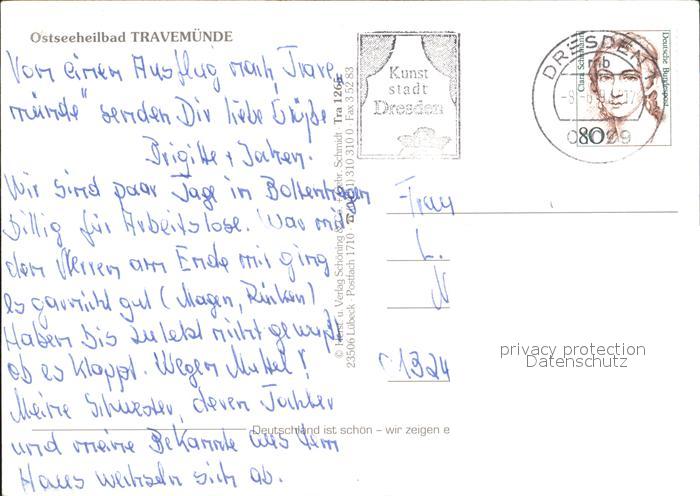 Ostseeheilbad TRAVEMÜNDE
Von einem Ausflug nach „Trave
münde" senden Dir liebe Grüße
Brigitte + Jochen.
Wir sind paar Tage in Boltenhagen
billig für Arbeitslose. War mit
den Nerven am Ende mir ging
es garnicht gut (Magen, Rücken)
Haben bis zuletzt nicht gewußt
ob es klappt. Wegen Mutti!
Meine Schwester, deren Tochter
und meine Bekannte aus dem
Haus wechseln sich ab.
Deutschland ist schön – wir zeigen e
© Kunst- u. Verlag Schöning & Gebr. Schmidt · Tra 126
23506 Lübeck · Postfach 1710 · 310 310 0 · Fax 3 52 83
Kunst
stadt
Dresden
DRESDEN 1
mb
Clara Schumann
Deutsche Bundespost
80
Frau
L.
N
01324
privacy protection
Datenschutz